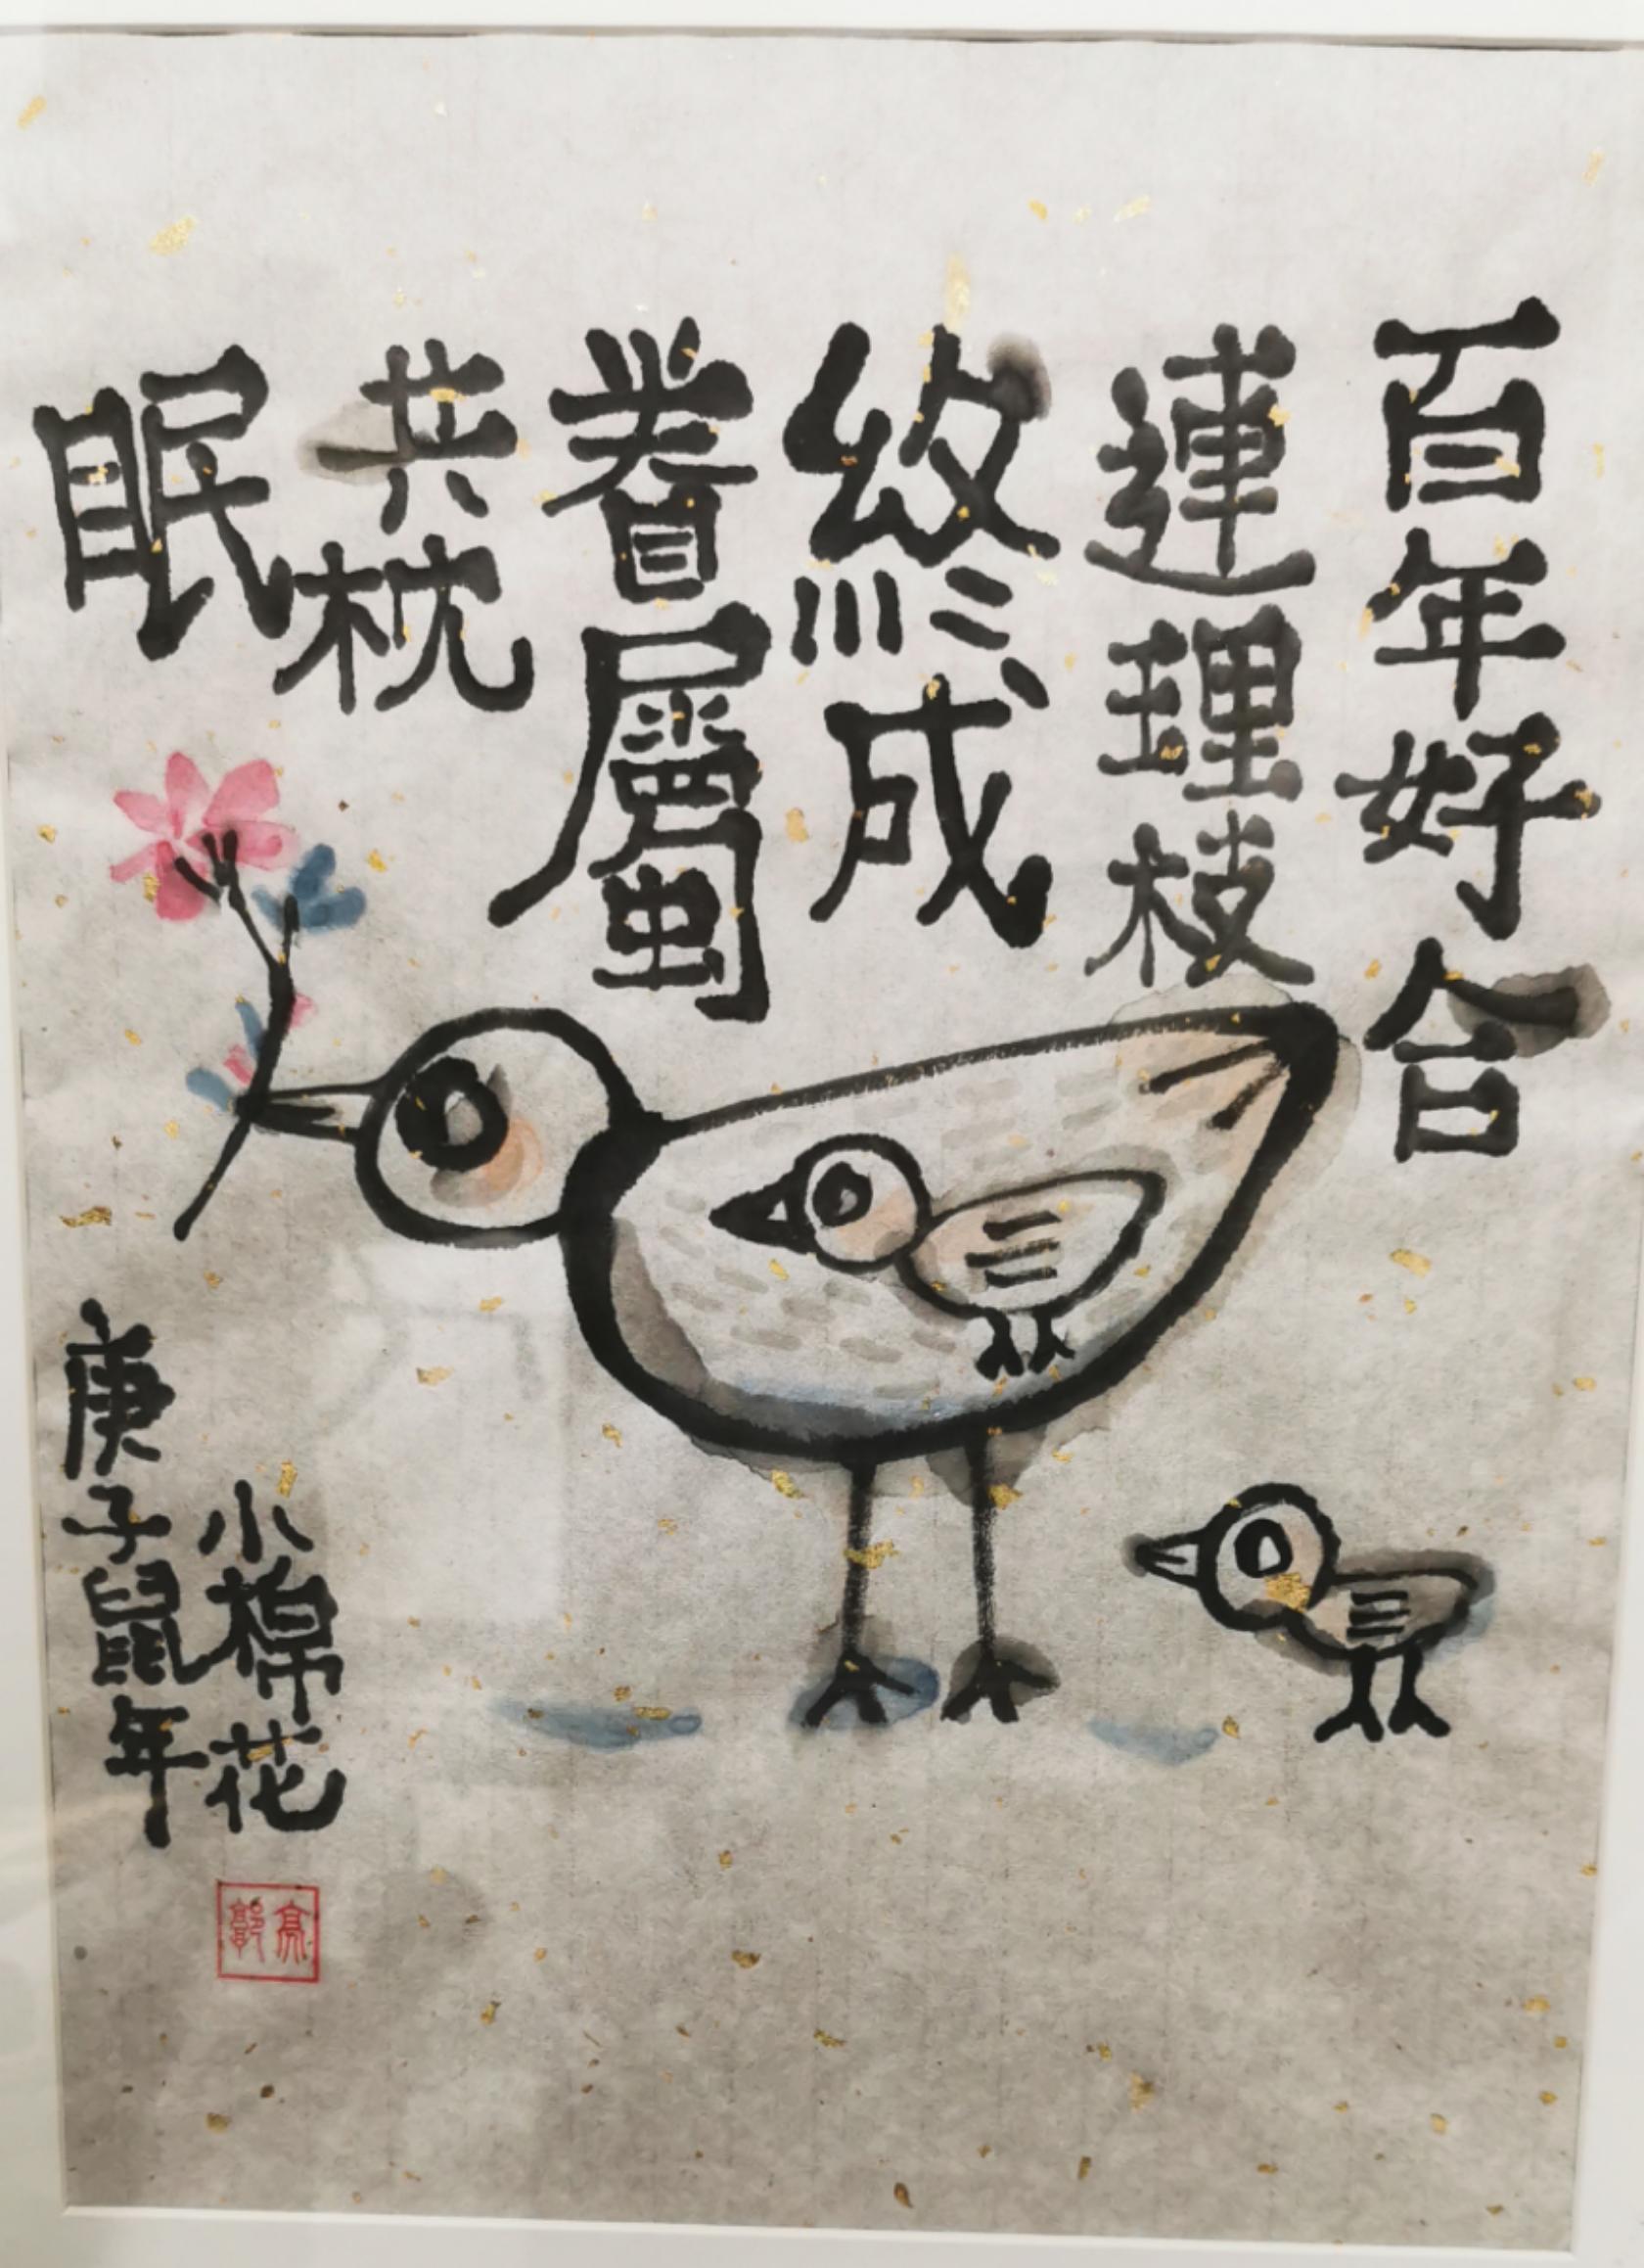 百年好合
連理枝
終成
眷屬
共枕
眠
小棉花
庚子鼠年